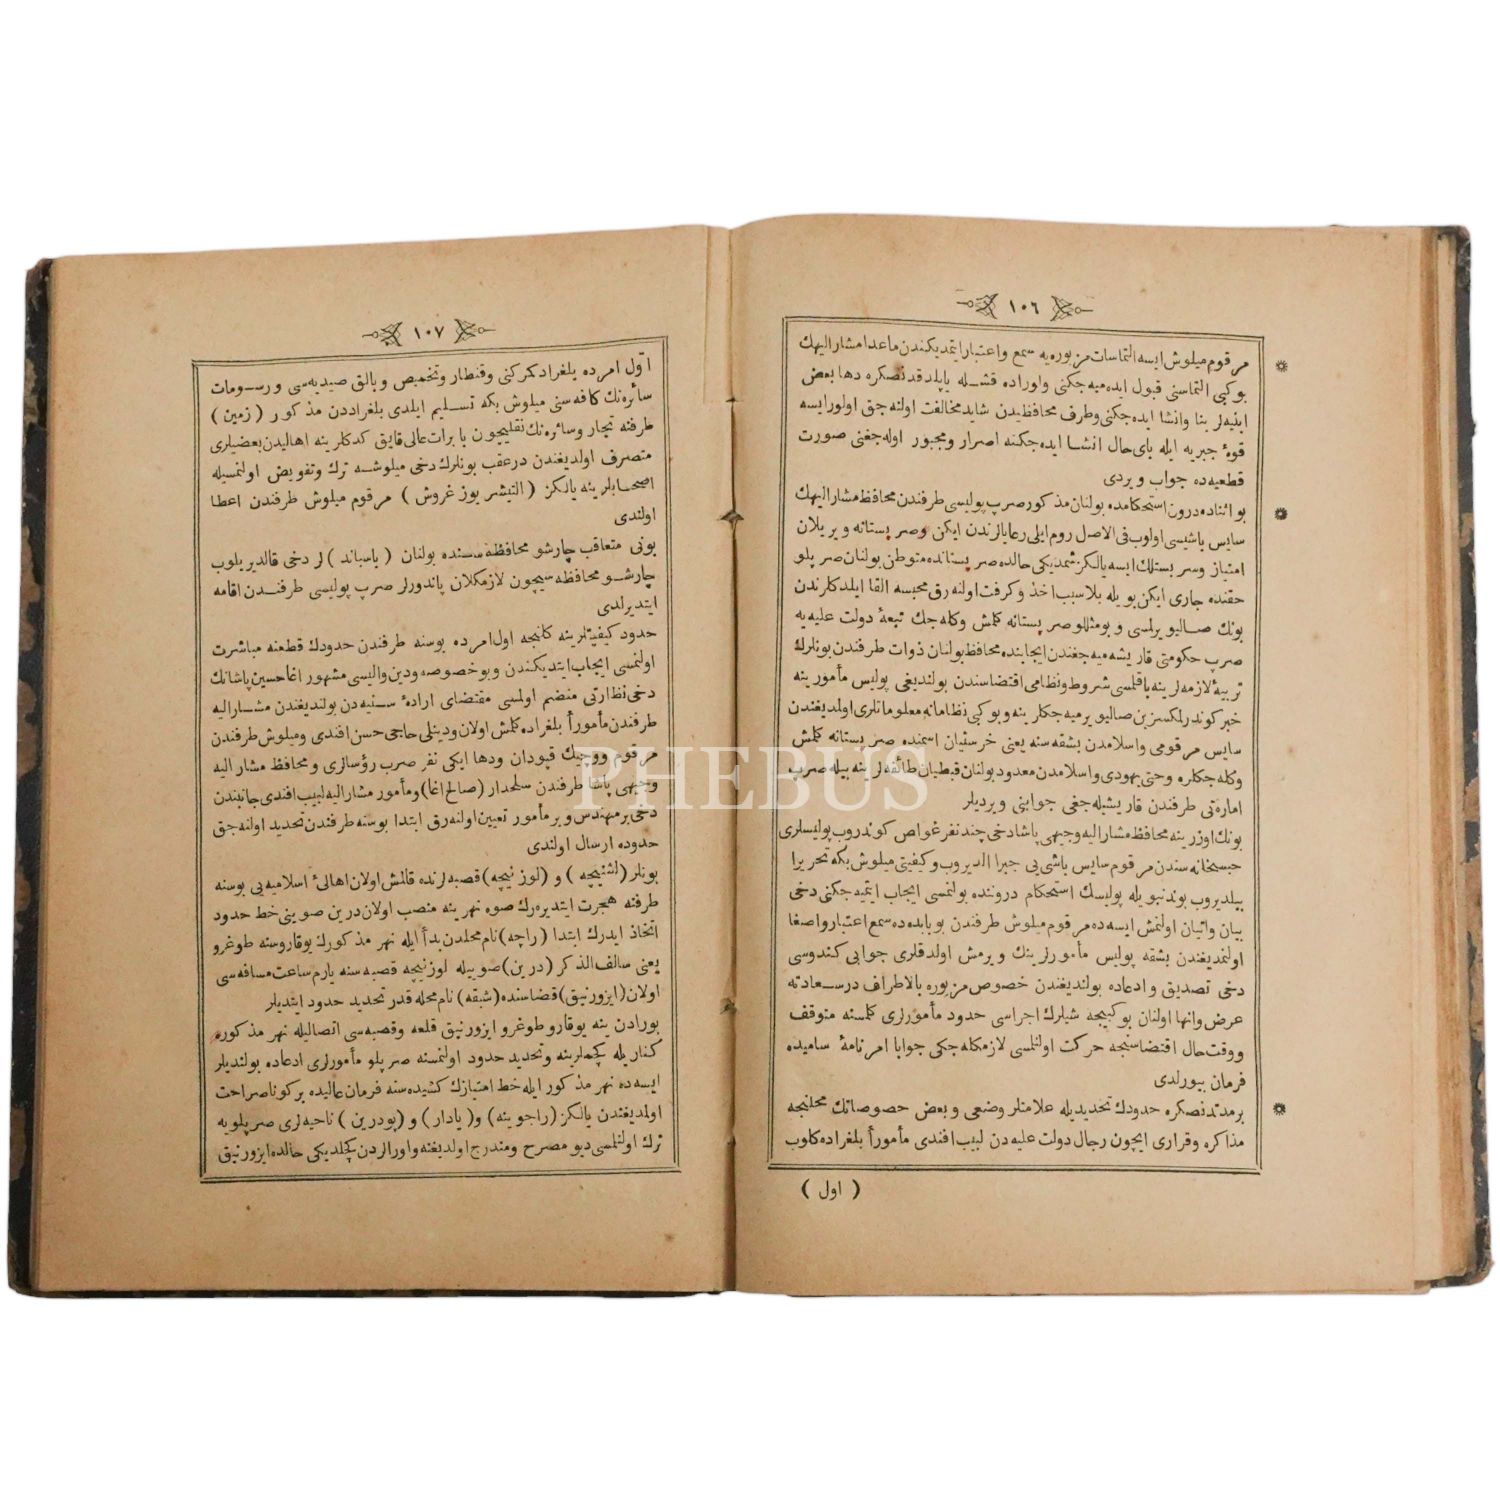 ١٠٦
مرقوم میلوش ایسه التماسات مزبوره‌یه سمع و اعتبار ایتمدیکندن ماعدا مشار الیهك
بو کبی التماسنی قبول ایده‌میه‌جکنی و اوراده قشله یاپلدقدنصکره دها بعض
ابنیه‌لر بنا و انشا ایده‌جکنی و طرف محافظیدن شاید مخالفت اولنه‌جق اولورایسه
قوهٔ جبریه ایله بای‌حال انشا ایده‌جکنه اصرار و مجبور اوله‌جغنی صورت
قطعیه‌ده جواب ویردی
بو اثناده درون استحکامده بولنان مذکور صرپ پولیسی طرفندن محافظ مشار الیهك
سایس باشیسی اولوب فی الاصل روم ایلی رعایالرندن ایکن و صربستانه ویریلان
امتیاز و سربستلك ایسه یالکز شمدیکی حالده صربستانده متوطن بولنان صرپلو
حقنده جاری ایکن بویله بلا سبب اخذ و کرفت اولنه‌رق محبسه القا ایلدکلرندن
بونك صالیویرلمسی و بو مثللو صربستانه کلمش و کله‌جك تبعهٔ دولت علیه‌یه
صرپ حکومتی قاریشه‌میه‌جغندن ایجابنده محافظ بولنان ذوات طرفندن بونلرك
تربیهٔ لازمه‌لرینه باقلمسی شروط و نظامی اقتضاسندن بولندیغی پولیس مأمورینه
خبر کوندرلمکسزین صالیویرمیه‌جکلرینه و بو کبی نظامانه معلوماتلری اولدیغندن
سایس مرقومی و اسلامدن بشقه‌سنه یعنی خرستیان اسمنده صربستانه کلمش
وکله‌جکلره وحتی یهودی و اسلامدن معدود بولنان قبطیان طائفه‌لرینه بیله صرب
امارتی طرفندن قاریشیله‌جغی جوابنی ویردیلر
بونك اوزرینه محافظ مشار الیه وجیهی پاشا دخی چند نفر غواص کوندروب پولیسلری
حبسخانه‌سندن مرقوم سایس باشی‌یی جبرا الدیروب و کیفیتی میلوش بکه تحریرا
بیلدیروب بوندنبویله پولیسك استحکام دروننده بولنمسی ایجاب ایتمیه‌جکنی دخی
بیان و اتیان اولنمش ایسه‌ده مرقوم میلوش طرفندن بو بابده‌ده سمع اعتبار و اصغا
اولنمدیغندن بشقه پولیس مأمورلرینك ویرمش اولدقلری جوابی کندوسی
دخی تصدیق و ادعاده بولندیغندن خصوص مزبوره بالاطراف درسعادته
عرض و انها اولنان بو کبیجه شیلرك اجراسی حدود مأمورلری کلمسنه متوقف
و وقت حال اقتضاسنجه حرکت اولنلمسی لازمکله‌جکی جوابا امرنامهٔ سامیده
فرمان بیورلدی
بر مدتدنصکره حدودك تحدیدیله علامتلر وضعی و بعض خصوصاتك محلنجه
مذاکره و قراری ایچون رجال دولت علیه‌دن لبیب افندی مأموراً بلغراده کلوب
( اول )
١٠٧
اول امرده بلغراد کمرکنی و قنطار و تخمیص و بالق صیدیه‌سی و رسومات
سائره‌نك کافه‌سنی میلوش بکه تسلیم ایلدی بلغراددن مذکور ( زمین )
طرفنه تجار و سائره‌نك نقلیچون با برات عالی قایق کدکلرینه اهالیدن بعضیلری
متصرف اولدیغندن در عقب بونلرك دخی میلوشه ترك و تفویض اولنمسیله
اصحابلرینه یالکز ( التیشر یوز غروش ) مرقوم میلوش طرفندن اعطا
اولندی
بونی متعاقب چارشو محافظه‌سنده بولنان ( یاسباند ) لر دخی قالدیریلوب
چارشو محافظه‌سیچون لازمکلان پاندورلر صرپ پولیسی طرفندن اقامه
ایتدیرلدی
حدود کیفیتلرینه کلنجه اول امرده بوسنه طرفندن حدودك قطعنه مباشرت
اولنمسی ایجاب ایتدیکندن و بو خصوصه ودین والیسی مشهور اغا حسین پاشانك
دخی نظارتی منضم اولمسی مقتضای ارادهٔ سنیه‌دن بولندیغندن مشارالیه
طرفندن مأموراً بلغراده کلمش اولان ودینلی حاجی حسن افندی و میلوش طرفندن
مرقوم ووجیك قپودان و دها ایکی نفر صرب رؤسالری و محافظ مشار الیه
وجیهی پاشا طرفندن سلحدار (صالح اغا) و مأمور مشارالیه لبیب افندی جانبندن
دخی بر مهندس و بر مأمور تعیین اولنه‌رق ابتدا بوسنه طرفندن تحدید اولنه‌جق
حدوده ارسال اولندی
بونلر (لشنیچه ) و (لوزنیچه) قصبه‌لرنده قالمش اولان اهالیٔ اسلامیه‌یی بوسنه
طرفنه هجرت ایتدیره‌رك صوه نهرینه منصب اولان درین صوینی خط حدود
اتخاذ ایدرك ابتدا (راچه) نام محلدن بدأ ایله نهر مذکورك یوقاروسنه طوغرو
یعنی سالف الذکر (درین) صوییله لوزنیچه قصبه‌سنه یارم ساعت مسافه‌سی
اولان (ایزورنیق) قضاسنده (شبقه) نام محله قدر تحدید حدود ایتدیلر
بورادن ینه یوقارو طوغرو ایزورنیق قلعه و قصبه‌سی اتصالیله نهر مذکوره
کناریله کچملرینه و تحدید حدود اولنمسنه صرپلو مأمورلری ادعاده بولندیلر
ایسه‌ده نهر مذکور ایله خط امتیازك کشیده‌سنه فرمان عالیده برکونا صراحت
اولمدیغندن یالکز (راجوینه) و ( یادار) و (پودرین ) ناحیه‌لری صرپلویه
ترك اولنلمسی دیو مصرح و مندرج اولدیغنه و اورالردن کچلدیکی حالده ایزورنیق
PHEBUS